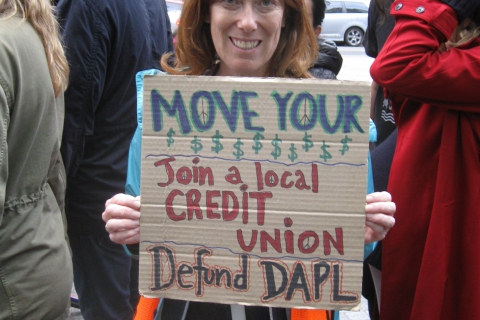 MOVE YOUR
$ $ $ $ $ $ $ $ $ $
Join a local
CREDIT
UNION
Defund DAPL